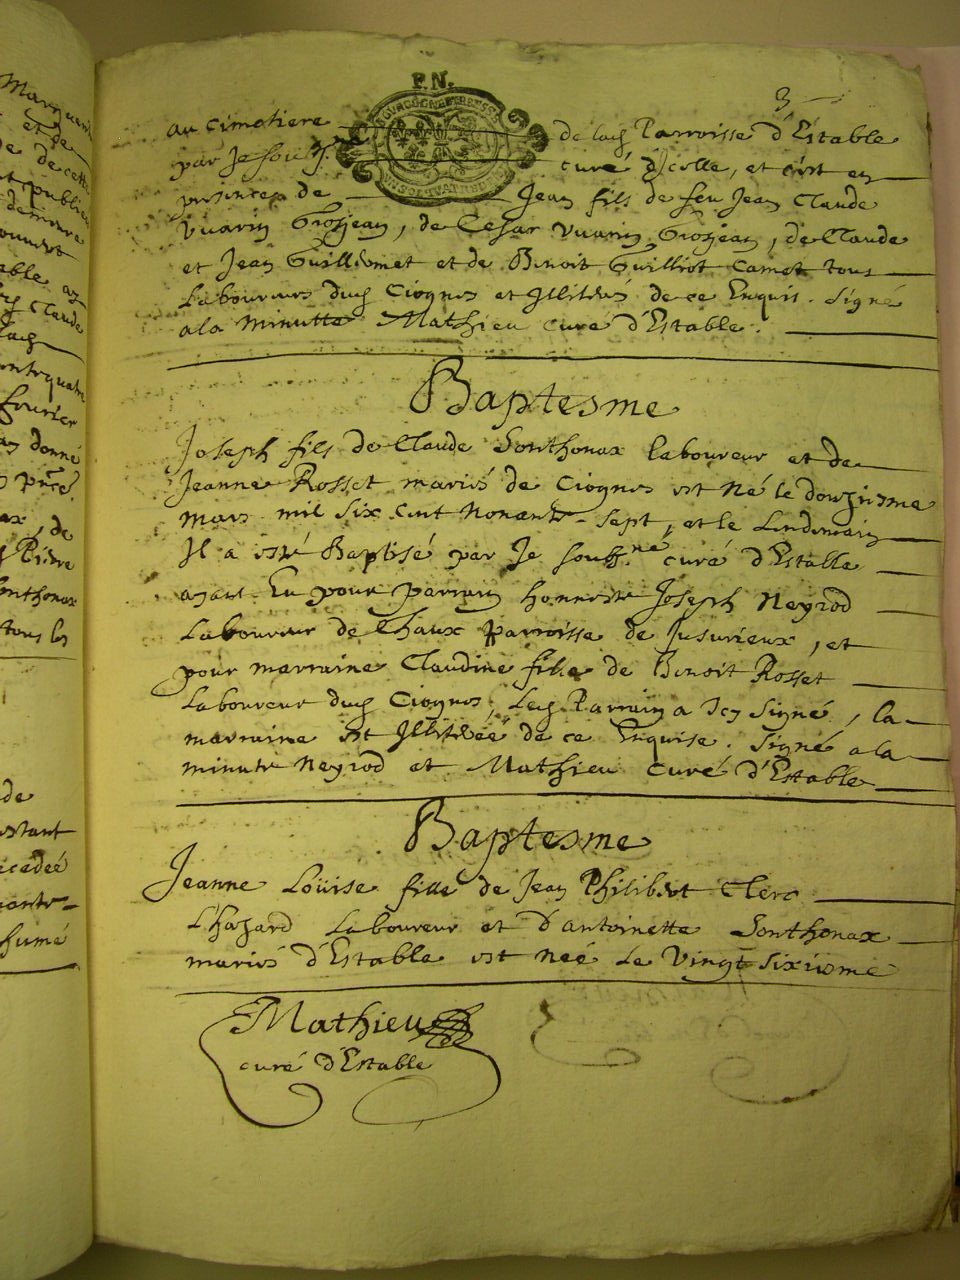 3
P.N.
au cimetiere de lad Parroisse d'Estable
par Je souss. curé d'Jcelle, et c'est en
presence de Jean fils de feu Jean Claude
Vuarin Grosjean, de Cesar Vuarin Grosjean, de Claude
et Jean Guillermet et de Benoit Guilliot Camet tous
Laboureurs dud Ciognes et Jllitérés de ce Enquis. Signé
ala minutte Mathieu curé d'Estable.
Baptesme
Joseph fils de Claude Sonthonax laboureur et de
Jeanne Rosset mariés de Ciognes est Né le douziesme
mars mil six cent nonante-sept, et le Lendemain
Il a esté Baptisé par Je souss.né curé d'Estable
ayant Eu pour parrain honneste Joseph Neyrod
Laboureur de Chaux parroisse de Jusurieux, et
pour marraine Claudine fille de Benoit Rosset
Laboureur dud Ciognes, Led Parrain a Icy signé, la
marraine est Jllitérée de ce Enquise. Signé ala
minute Neyrod et Mathieu curé d'Estable
Baptesme
Jeanne Loüise fille de Jean Philibert Clerc
L'hazard Laboureur et d'antoinette Sonthonax
mariés d'Estable est née Le Vingt sixiesme
Mathieu
curé d'Estable